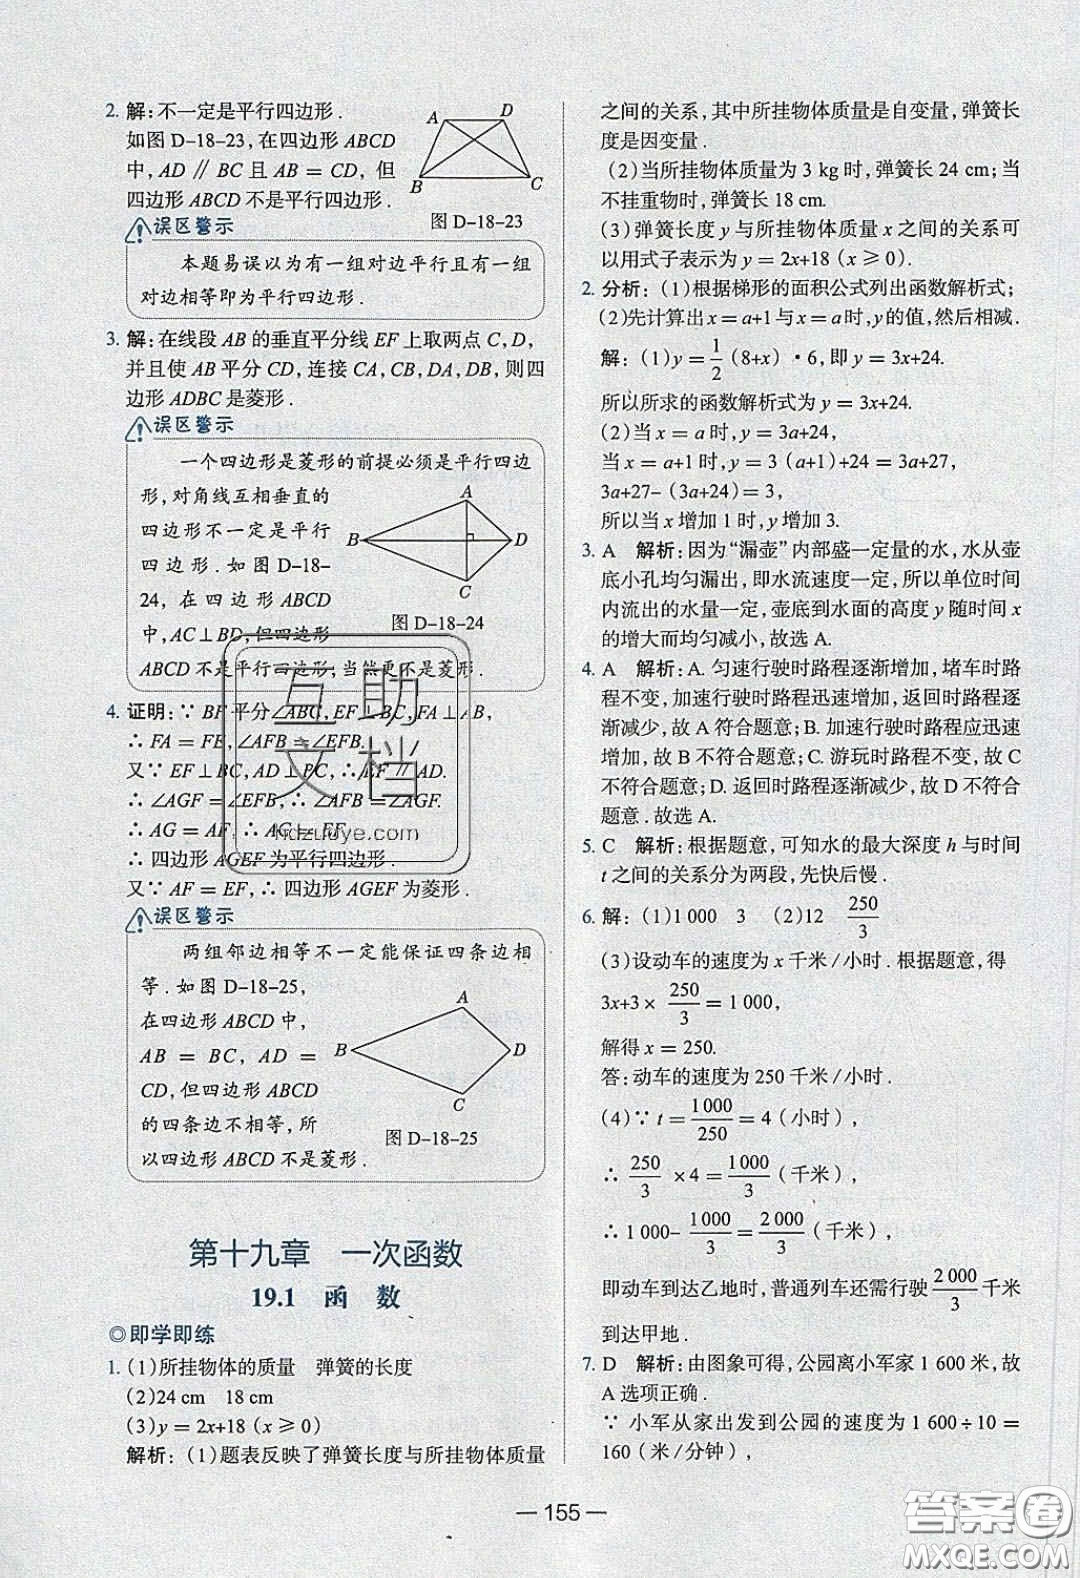 2. 解:不一定是平行四边形.
如图 D-18-23,在四边形 ABCD
中, AD ∥ BC 且 AB = CD, 但
四边形 ABCD 不是平行四边形.
A
D
B
C
图 D-18-23
误区警示
本题易误以为有一组对边平行且有一组
对边相等即为平行四边形.
3. 解:在线段 AB 的垂直平分线 EF 上取两点 C, D,
并且使 AB 平分 CD, 连接 CA, CB, DA, DB, 则四
边形 ADBC 是菱形.
误区警示
一个四边形是菱形的前提必须是平行四边
形,对角线互相垂直的
四边形不一定是平行
四边形.如图 D-18-
24, 在四边形 ABCD
中, AC⊥BD, 但四边形
ABCD 不是平行四边形,当然更不是菱形.
A
B
D
C
图 D-18-24
4. 证明:∵ BF 平分∠ABC, EF⊥BC, FA⊥AB,
∴ FA = FE, ∠AFB = ∠EFB.
又∵ EF⊥BC, AD⊥BC, ∴ EF∥AD.
∴ ∠AGF = ∠EFB, ∴ ∠AFB = ∠AGF.
∴ AG = AF, ∴ AG = EF.
∴ 四边形 AGEF 为平行四边形.
又∵ AF = EF, ∴ 四边形 AGEF 为菱形.
误区警示
两组邻边相等不一定能保证四条边相
等.如图 D-18-25,
在四边形 ABCD 中,
AB = BC, AD =
CD, 但四边形 ABCD
的四条边不相等, 所
以四边形 ABCD 不是菱形.
A
B
D
C
图 D-18-25
第十九章 一次函数
19.1 函 数
◎即学即练
1. (1)所挂物体的质量 弹簧的长度
(2)24 cm 18 cm
(3)y = 2x+18 (x ≥ 0)
解析: (1)题表反映了弹簧长度与所挂物体质量
之间的关系, 其中所挂物体质量是自变量, 弹簧长
度是因变量.
(2)当所挂物体质量为 3 kg 时, 弹簧长 24 cm; 当
不挂重物时, 弹簧长 18 cm.
(3)弹簧长度 y 与所挂物体质量 x 之间的关系可
以用式子表示为 y = 2x+18 (x ≥ 0).
2. 分析: (1)根据梯形的面积公式列出函数解析式;
(2)先计算出 x = a+1 与 x = a 时, y 的值, 然后相减.
解: (1)y = 1/2 (8+x)·6, 即 y = 3x+24.
所以所求的函数解析式为 y = 3x+24.
(2)当 x = a 时, y = 3a+24,
当 x = a+1 时, y = 3 (a+1)+24 = 3a+27,
3a+27-(3a+24) = 3,
所以当 x 增加 1 时, y 增加 3.
3. A 解析: 因为“漏壶”内部盛一定量的水, 水从壶
底小孔均匀漏出, 即水流速度一定, 所以单位时间
内流出的水量一定, 壶底到水面的高度 y 随时间 x
的增大而均匀减小, 故选 A.
4. A 解析: A. 匀速行驶时路程逐渐增加, 堵车时路
程不变, 加速行驶时路程迅速增加, 返回时路程逐
渐减少, 故 A 符合题意; B. 加速行驶时路程应迅速
增加, 故 B 不符合题意; C. 游玩时路程不变, 故 C
不符合题意; D. 返回时路程逐渐减少, 故 D 不符合
题意. 故选 A.
5. C 解析: 根据题意, 可知水的最大深度 h 与时间
t 之间的关系分为两段, 先快后慢.
6. 解: (1)1 000 3 (2)12 250/3
(3)设动车的速度为 x 千米/小时. 根据题意, 得
3x+3× 250/3 = 1 000,
解得 x = 250.
答: 动车的速度为 250 千米/小时.
(4)∵ t = 1 000/250 = 4 (小时),
∴ 250/3 ×4 = 1 000/3 (千米),
∴ 1 000- 1 000/3 = 2 000/3 (千米),
即动车到达乙地时, 普通列车还需行驶 2 000/3 千米
到达甲地.
7. D 解析: 由图象可得, 公园离小军家 1 600 米, 故
A 选项正确.
∵ 小军从家出发到公园的速度为 1 600÷10 =
160(米/分钟),
— 155 —
互助
文档
hdzuoye.com
答案圈
MXQE.COM